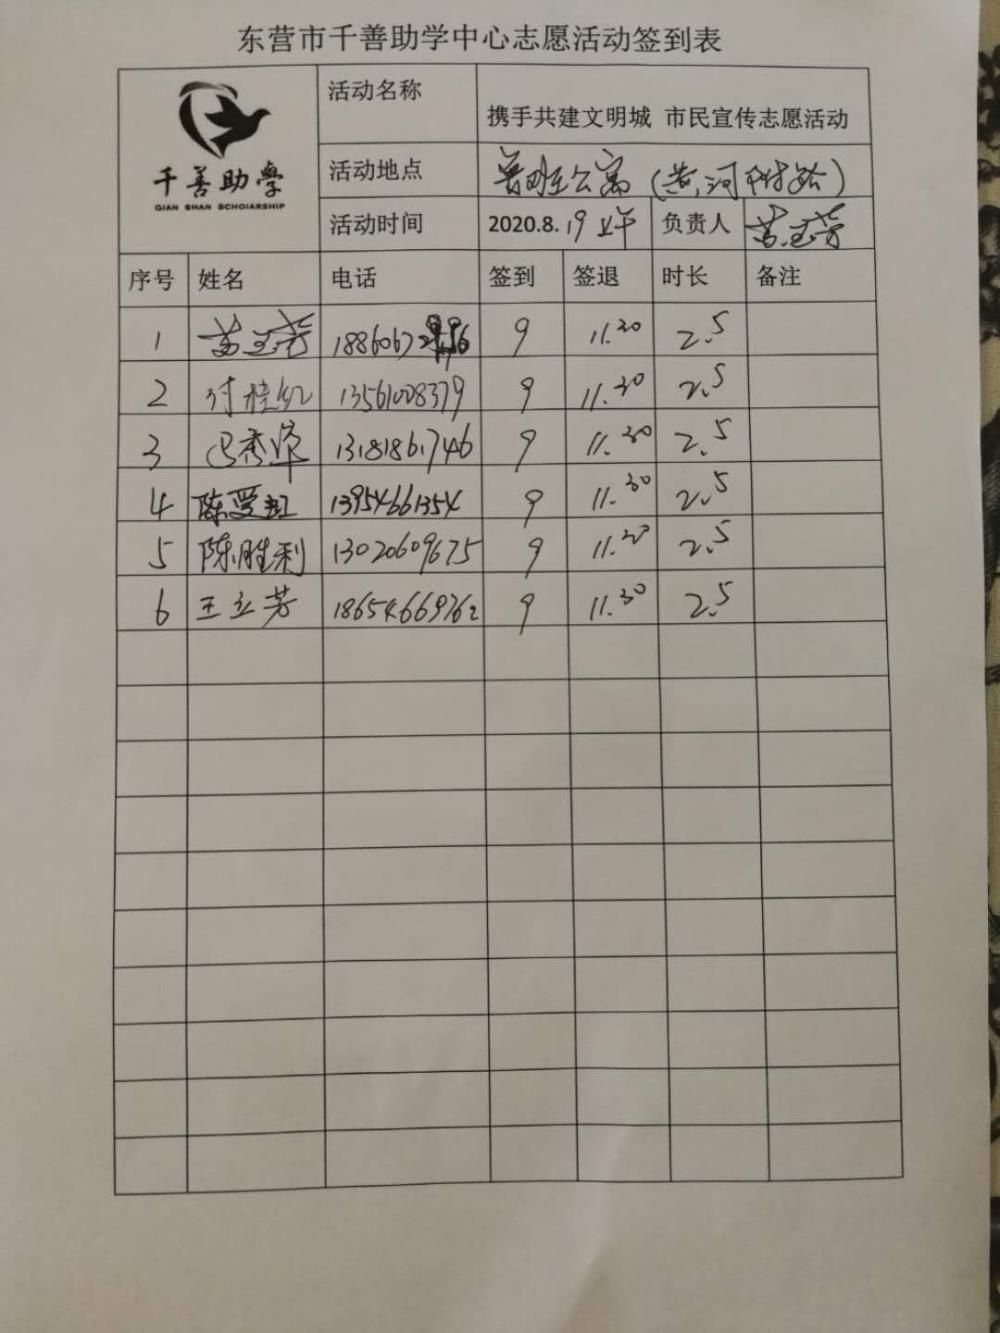 东营市千善助学中心志愿活动签到表
千善助學
QIAN SHAN SCHOLARSHIP
活动名称 携手共建文明城 市民宣传志愿活动
活动地点 鲁班公寓(黄河路)
活动时间 2020.8.19上午 负责人
序号 姓名 电话 签到 签退 时长 备注
1 9 11.30 2.5
2 付桂红 13561008379 9 11.30 2.5
3 13181861746 9 11.30 2.5
4 陈爱红 13954661354 9 11.30 2.5
5 陈胜利 13020609675 9 11.30 2.5
6 王立芳 18654669762 9 11.30 2.5